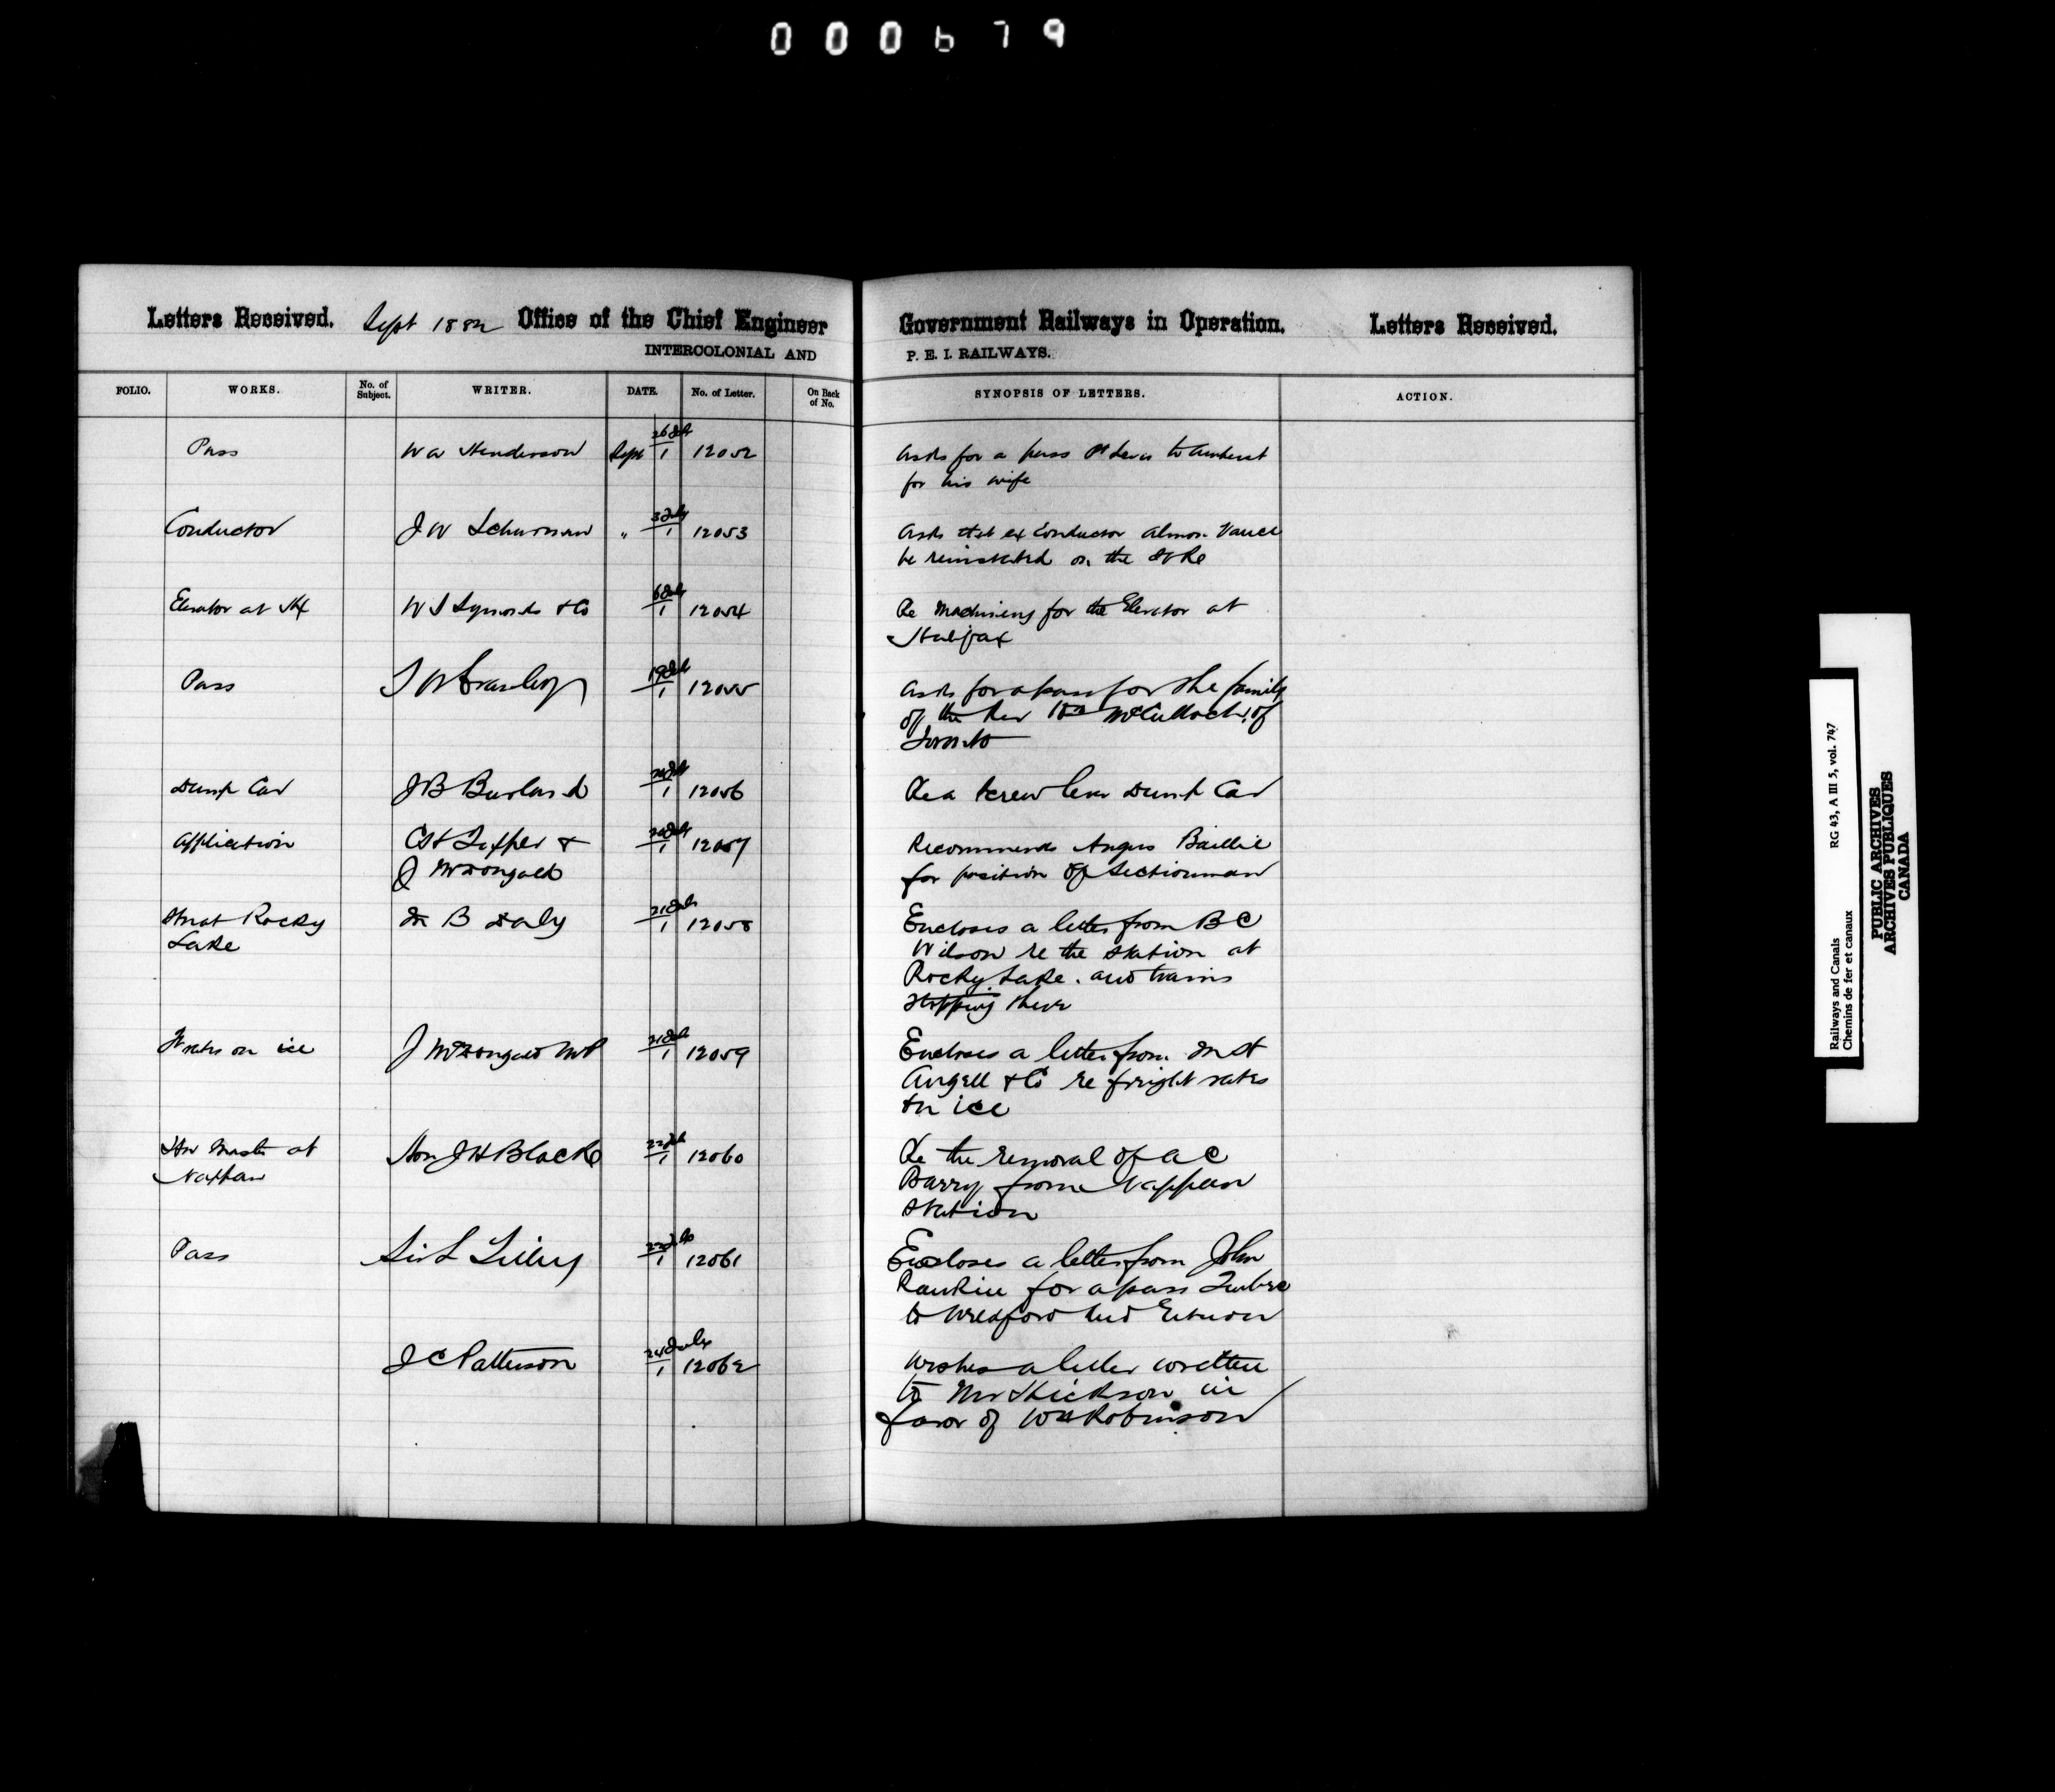 000679
Letters Received. Sept 1882 Office of the Chief Engineer Government Railways in Operation. Letters Received.
INTERCOLONIAL AND P. E. I. RAILWAYS.
FOLIO. WORKS. No. of Subject. WRITER. DATE. No. of Letter. On Back of No. SYNOPSIS OF LETTERS. ACTION.
Pass W A Henderson Sept 1 12052 Asks for a pass Pt Levis to Amherst
for his wife
Conductor J W Schurman " 3 July 1 12053 Asks that ex Conductor Almon Vance
be reinstated on the
Elevator at Hfx W S Symonds & Co 1 12054 Re Machinery for the Elevator at
Halifax
Pass 1 12055 Asks for a pass for the family
of the Rev Wm McCulloch of
Dump Car J B Burland 1 12056 Re a Screw lever Dump Car
Application C H Tupper & 1 12057 Recommends Angus Baillie
J McDougald for position of Sectionman
Stn at Rocky B Daly 21 July 1 12058 Encloses a letter from B C
Lake Wilson re the station at
Rocky Lake. and trains
stopping there
F rates on ice J McDougald MP 21 July 1 12059 Encloses a letter from
Angell & Co re freight rates
on ice
Stn Master at Hon J H Black 1 12060 Re the removal of A C
Nappan Barry from Nappan
station
Pass Sir L Tilley 1 12061 Encloses a letter from John
Rankin for a pass Quebec
to and Return
J C Patterson 24 July 1 12062 Wishes a letter written
to Mr Hickson in
favor of Wm Robinson
Railways and Canals RG 43, A III 5, vol. 747
Chemins de fer et canaux
PUBLIC ARCHIVES
ARCHIVES PUBLIQUES
CANADA